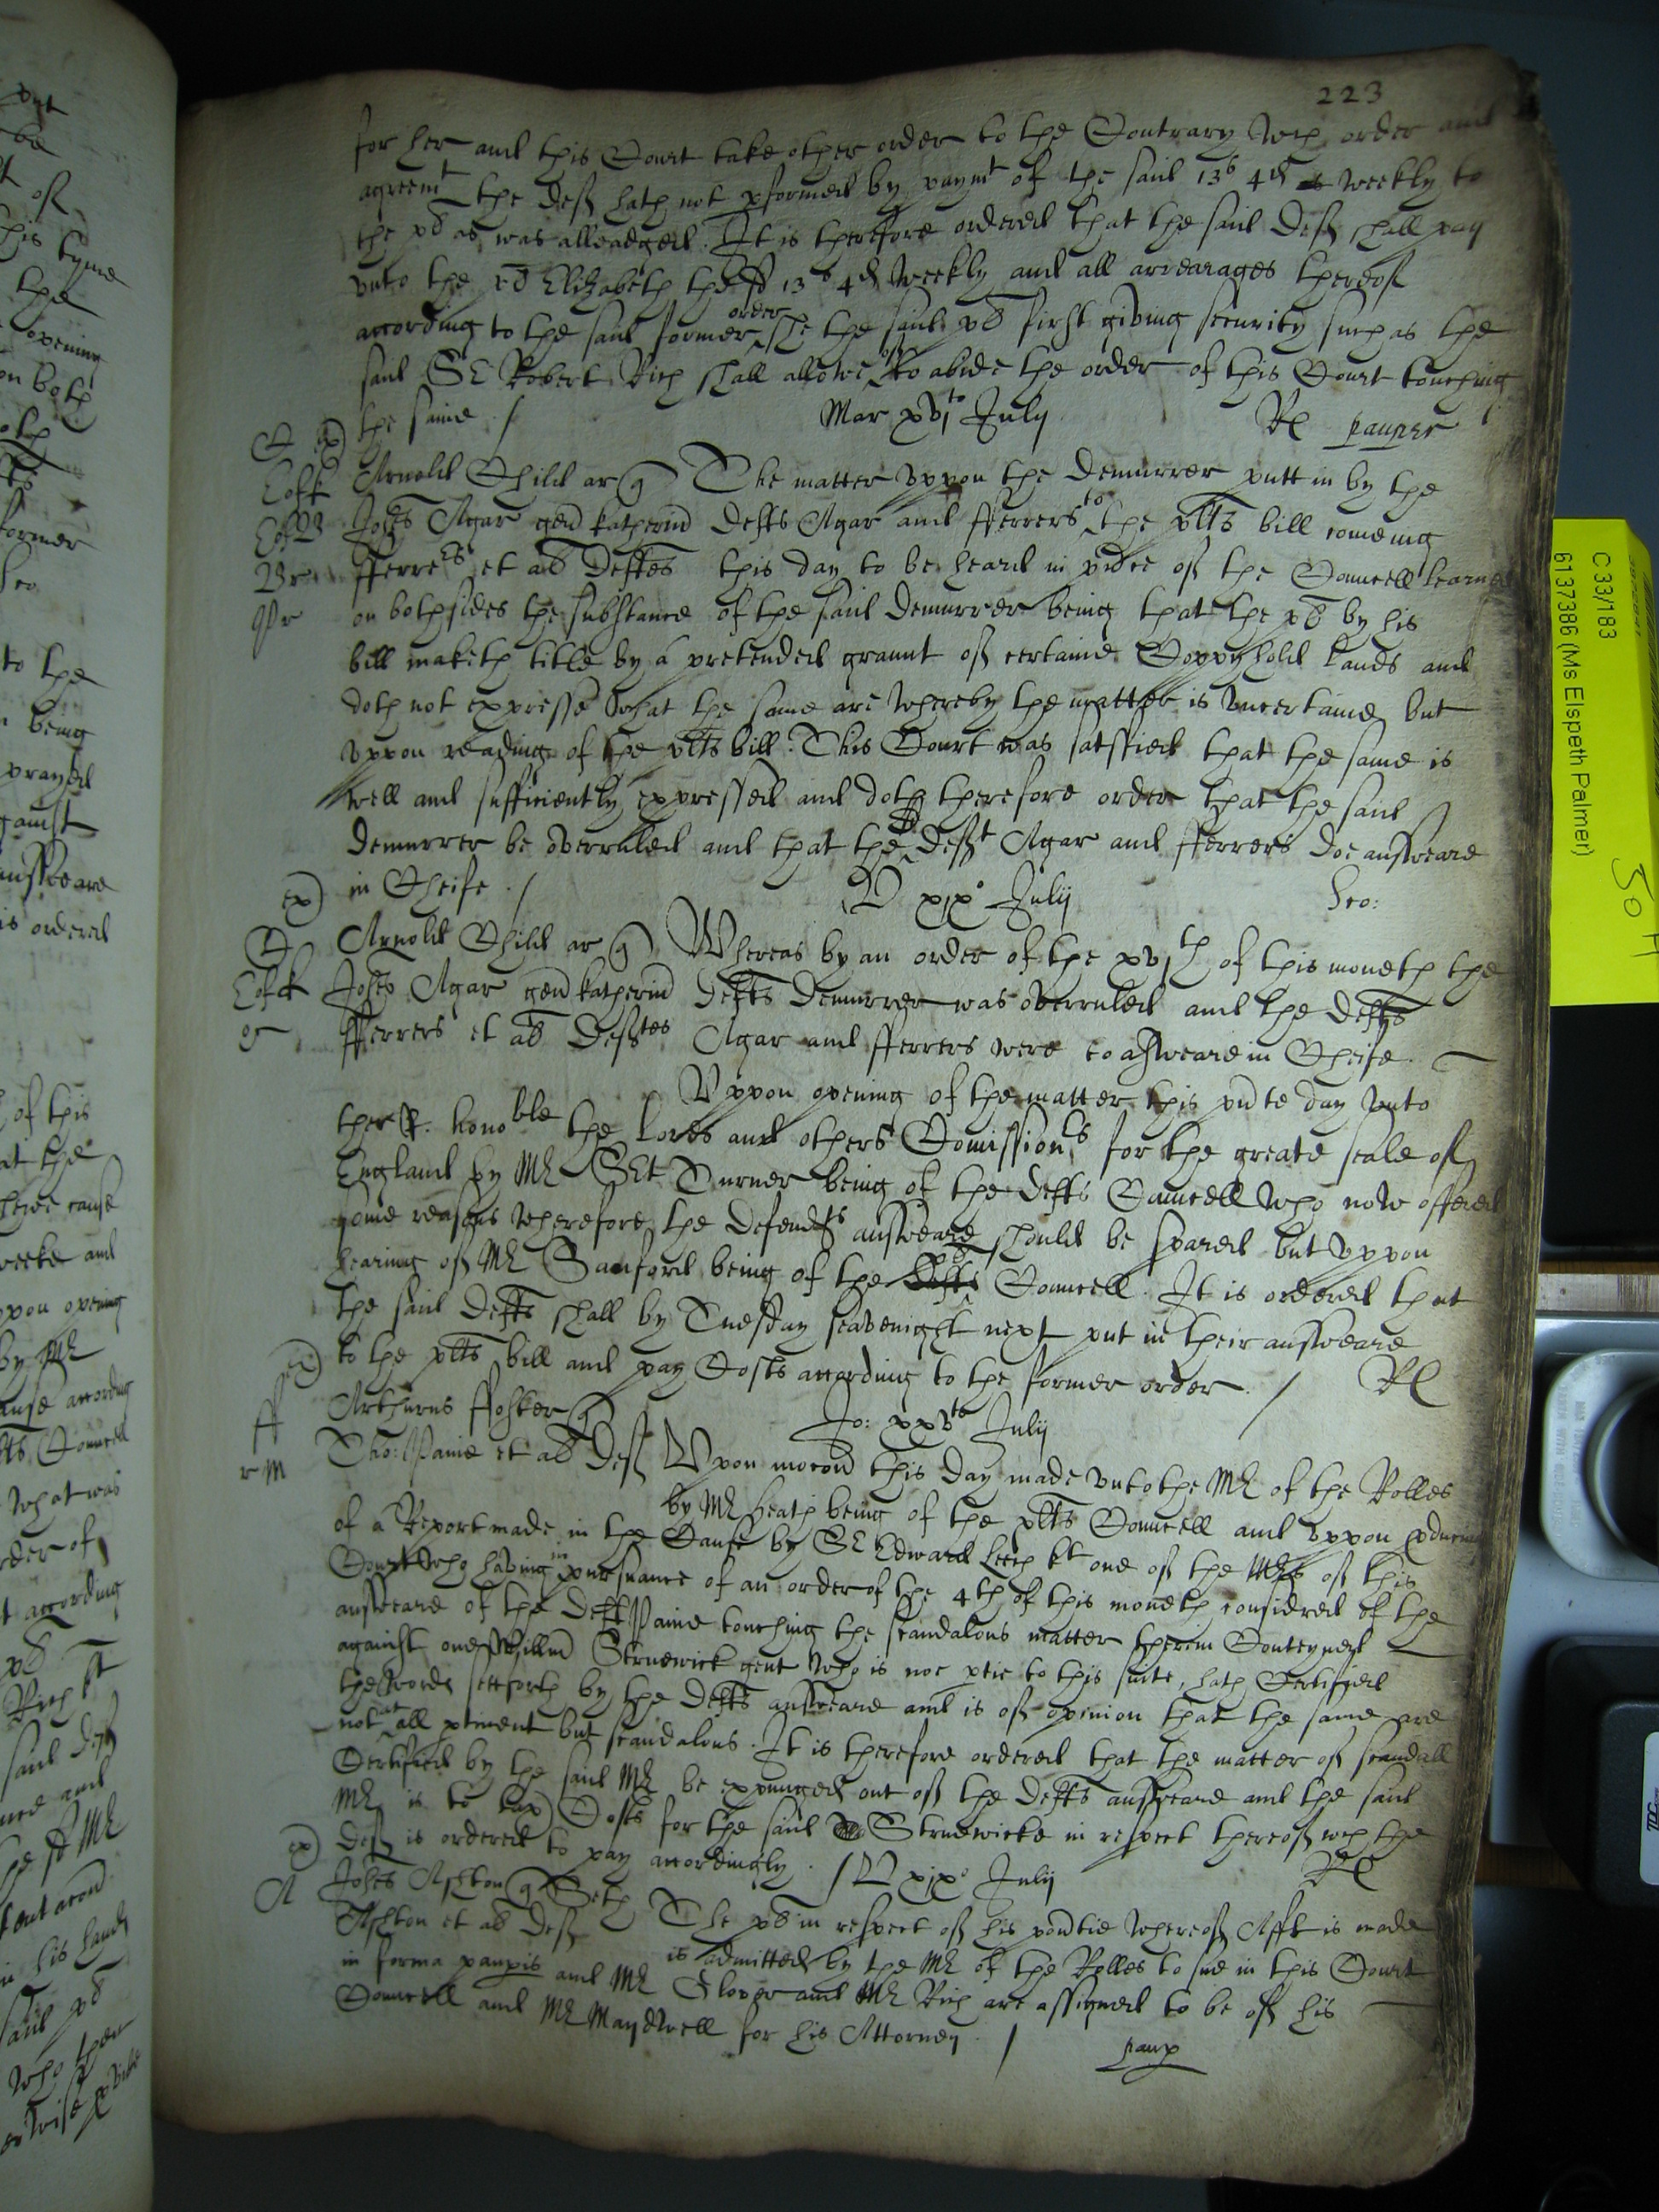 223
for her and this Court take other order to the Contrary wch order and
agreemt the Deft hath not pformed by paymt of the said 13s 4d weekly to
the pl as was alleadged. It is therefore ordered that the said Deft shall pay
unto the pl Elizabeth the sd 13s 4d weekly and all arrearages thereof
according to the said former order she the said pl first giving security such as the
said Sr Robert Rich shall allowe of to abide the order of this Court touching
the same ./
Mar xvjto Julij
Rl pauper
Arnold Child ar q The matter uppon the Demurrer putt in by the
Johes Agar gen Katherin Defts Agar and fferrers to the plts bill comeing
fferrers et al Deftes this day to be heard in pnce of the Councell learned
on bothsides the substance of the said Demurrer being that the pl by his
bill maketh title by a pretended graunt of certaine Coppyhold lands and
doth not expresse what the same are whereby the matter is uncertaine but
uppon reading of the plts bill. This Court was satisfied that the same is
well and sufficiently expressed and doth therefore order that the said
Demurrer be overruled and that the Deft Agar and fferrers doe answeare
in Cheife ./
V xix° Julij
Geo:
Arnold Child ar q Whereas by an order of the xvjth of this moneth the
Johes Agar gen Katherin Defts Demurrer was overruled and the Defts
fferrers et al Deftes Agar and fferrers were to answeare in Cheife.
Uppon opening of the matter this pnte day unto
the R. honoble the Lordes and others Comissionrs for the greate seale of
England by Mr Sct Turner being of the Defts Councell who now offered
some reasons wherefore the Defendts answeare should be spared but uppon
hearing of Mr Sanford being of the pl Councell. It is ordered that
the said Defts shall by Tuesday seavenight next put in their answeare
to the plts bill and pay Costs according to the former order. /
Rl
Arthurus ffosker q
Jo: xxvto Julij
Tho: Paine et al Deft Upon mocon this Day made unto the Mr of the Rolles
by Mr Heath being of the plts Councell and uppon pducing
of a Report made in the Cause by Sr Edward Leech kt one of the Mrs of this
Court who having in pursuance of an order of the 4th of this moneth considered of the
answeare of the Deft Paine touching the scandalous matter therein Conteyned
against one Willm Strudwick gent who is noe ptie to this suite, hath Certified
the words sett forth by the Defts answeare and is of opinion that the same are
not at all ptinent but scandalous. It is therefore ordered that the matter of scandall
Certified by the said Mr be expunged out of the Defts answeare and the said
Mr is to tax Costs for the said Strudwicke in respect thereof wch the
Deft is ordered to pay accordingly. /
V xix° Julij
Rl
Johes Ashton q Seth
Ashton et al Deft The pl in respect of his povtie whereof Afft is made
is admitted by the Mr of the Rolles to sue in this Court
in forma paupis and Mr Glover and Mr Rich are assigned to be of his
Councell and Mr Maydwell for his Attorney. /
paup
C 33/183
6137386 (Ms Elspeth Palmer)